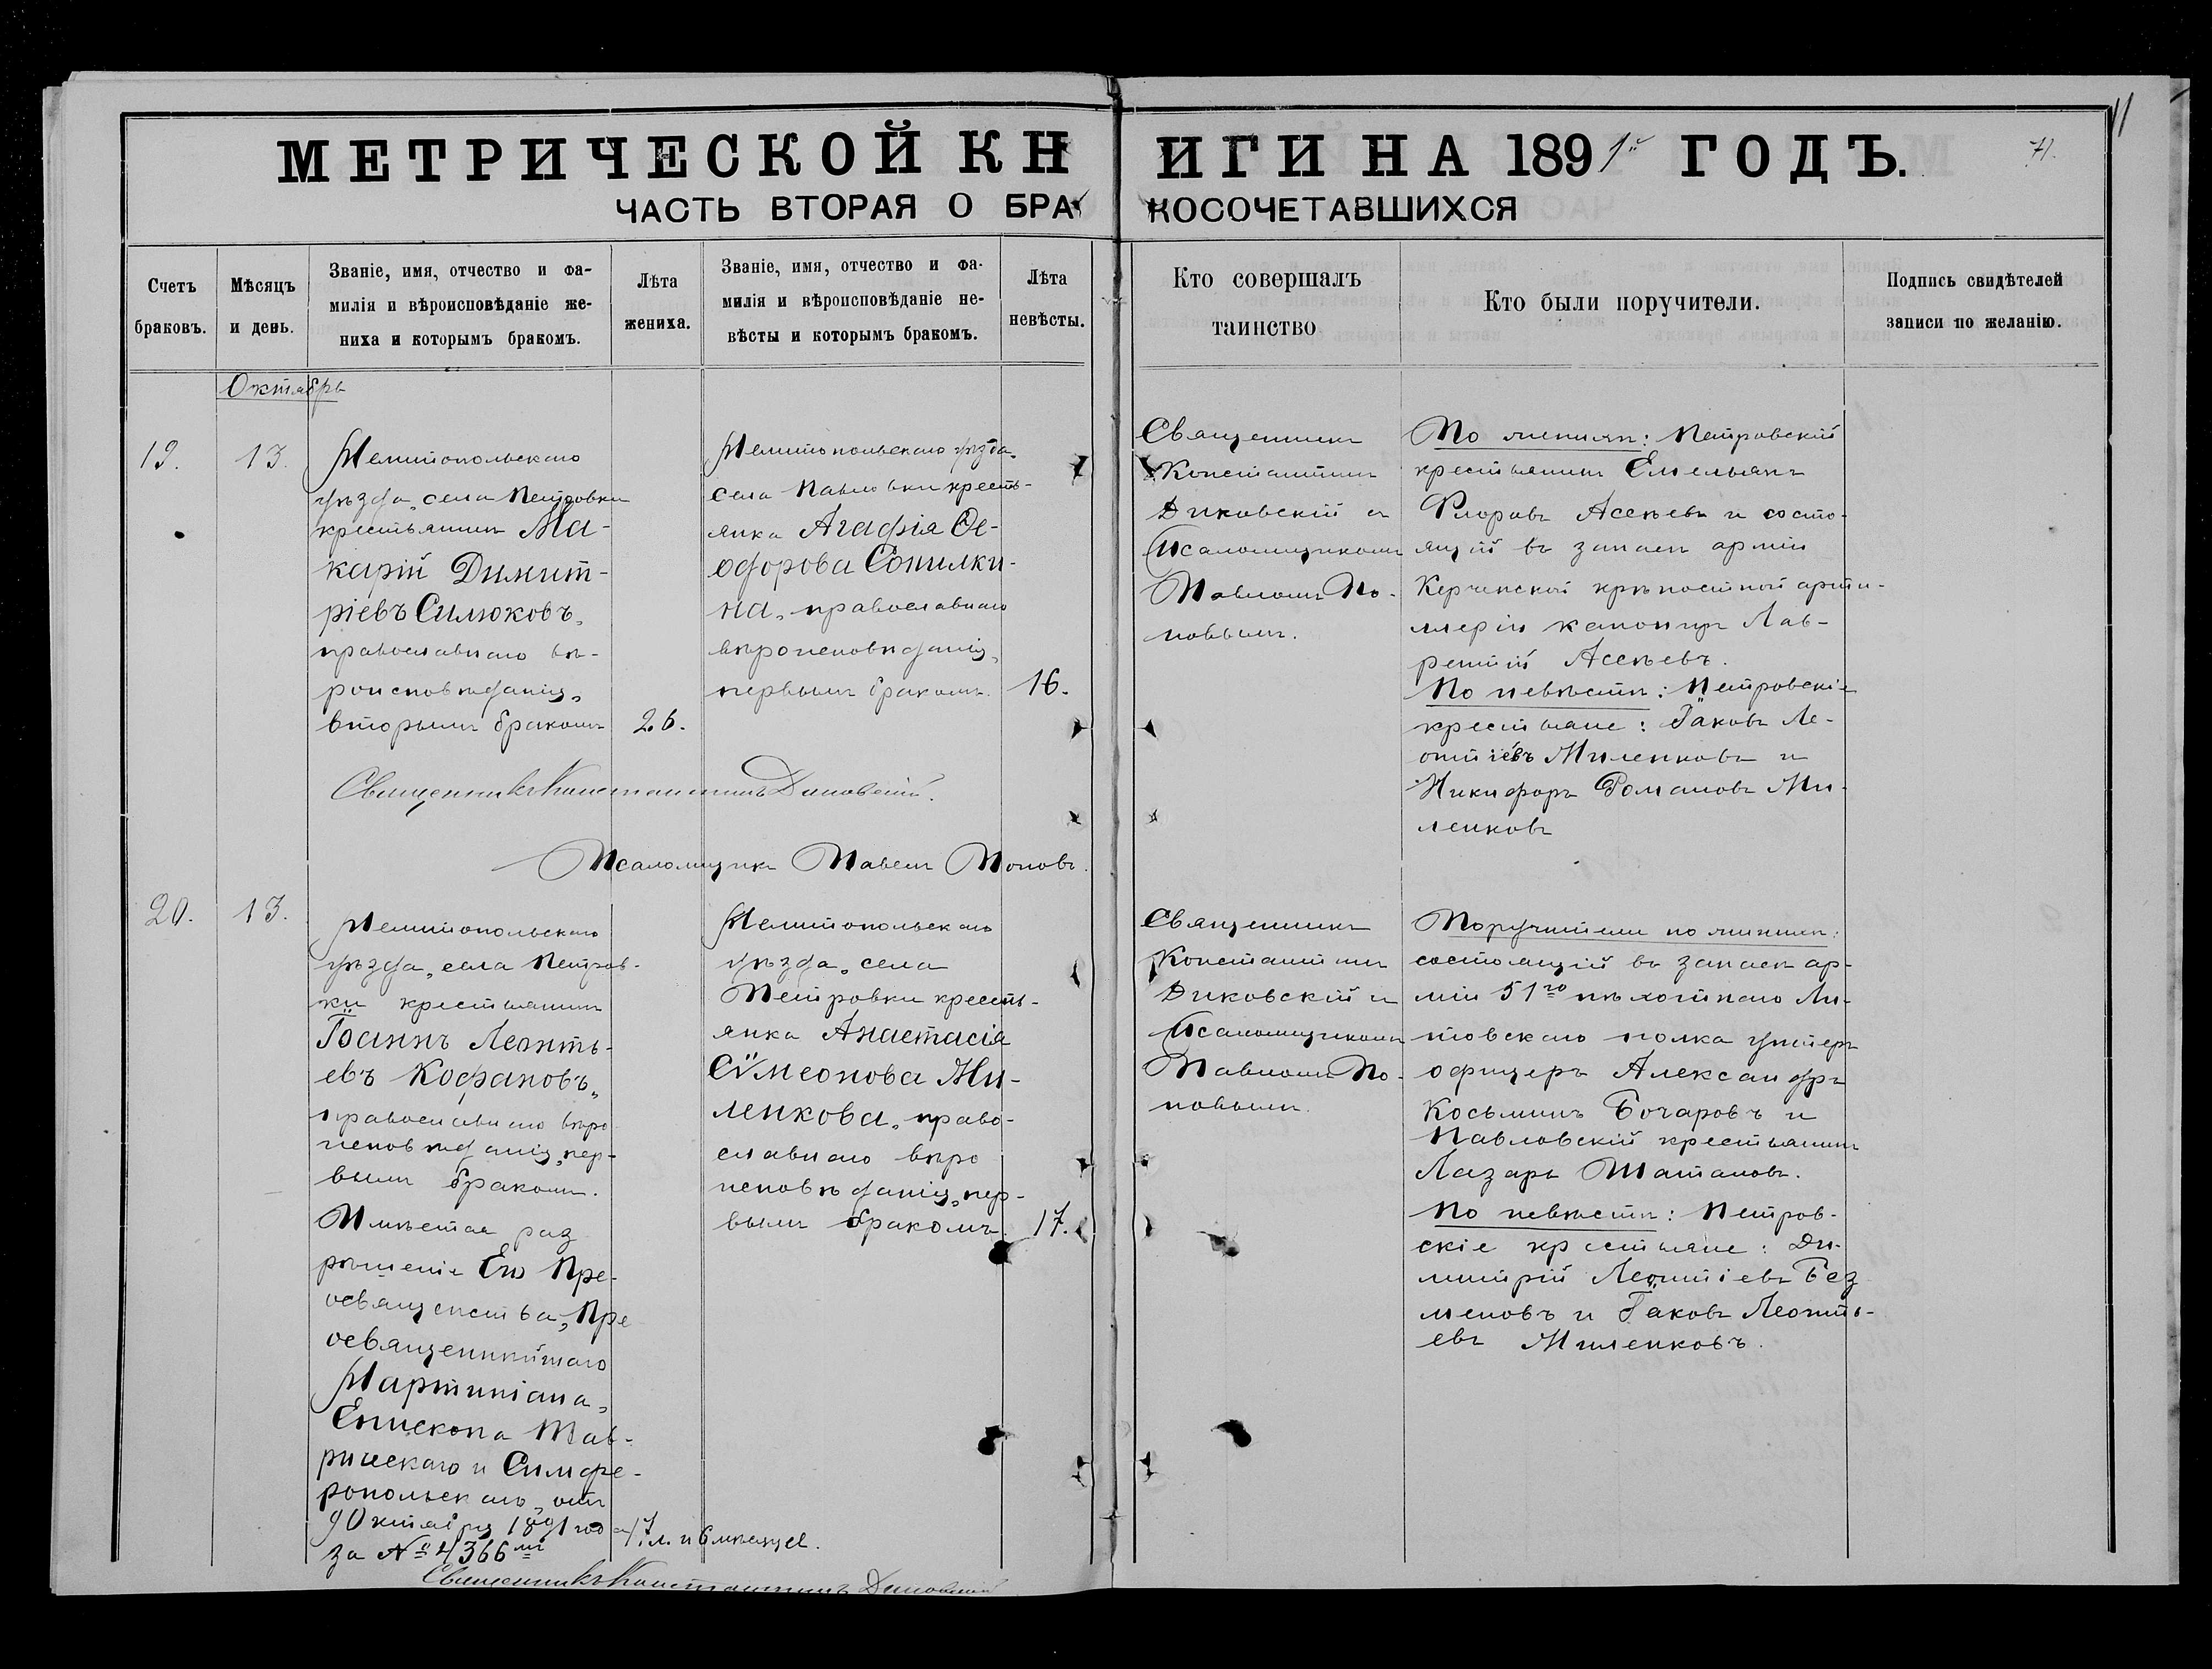 11
МЕТРИЧЕСКОЙ КНИГИ НА 1891й ГОДЪ.
71.
ЧАСТЬ ВТОРАЯ О БРАКОСОЧЕТАВШИХСЯ
Счетъ
браковъ.
Мѣсяцъ
и день.
Званіе, имя, отчество и фа-
милія и вѣроисповѣданіе же-
ниха и которымъ бракомъ.
Лѣта
жениха.
Званіе, имя, отчество и фа-
милія и вѣроисповѣданіе не-
вѣсты и которымъ бракомъ.
Лѣта
невѣсты.
Кто совершалъ
таинство
Кто были поручители.
Подпись свидѣтелей
записи по желанію.
Октябрь
19.
13.
Мелитопольскаго
уѣзда, села Петровки
крестьянинъ Ма-
карій Димит-
ріевъ Силюковъ,
православнаго вѣ-
роисповѣданія,
вторымъ бракомъ
26.
Мелитопольскаго уѣзда,
села Павловки кресть-
янка Агафія Ѳе-
одорова Сопилки-
на, православнаго
вѣроисповѣданія,
первымъ бракомъ.
16.
Священникъ
Константинъ
Диковскій и
Псаломщикомъ
Павломъ По-
повымъ.
По женихѣ: Петровскій
крестьянинъ Емельянъ
Флоровъ Асѣевъ и состо-
ящій въ запасѣ арміи
Керченской крѣпостной арти-
ллеріи канониръ Лав-
рентій Асѣевъ.
По невѣстѣ: Петровскіе
крестьяне: Іаковъ Ле-
онтіевъ Миленковъ и
Никифоръ Романовъ Ми-
ленковъ
Священникъ Константинъ Диковскій.
Псаломщикъ Павелъ Поповъ.
20.
13.
Мелитопольскаго
уѣзда, села Петров-
ки крестьянинъ
Іоаннъ Леонть-
евъ Кофановъ,
православнаго вѣро
исповѣданія, пер-
вымъ бракомъ.
Имѣется раз
рѣшеніе Его Пре-
освященства, Пре
освященнѣйшаго
Мартиніана,
Епископа Тав-
рическаго и Симфе-
ропольскаго, отъ
9 Октября 1891 года
за № 4366мъ
17 л. и 6 мѣсяцев.
Мелитопольскаго
уѣзда, села
Петровки кресть-
янка Анастасія
Сѵмеонова Ми-
ленкова, право-
славнаго вѣро
исповѣданія, пер-
вымъ бракомъ.
17.
Священникъ
Константинъ
Диковскій и
Псаломщикомъ
Павломъ По-
повымъ.
Поручители по женихѣ:
состоящій въ запасѣ ар-
міи 51го пѣхотнаго Ли-
товскаго полка унтеръ
офицеръ Александръ
Косьминъ Бочаровъ и
Павловскій крестьянинъ
Лазарь Шаталовъ.
По невѣстѣ: Петров-
скіе крестьяне: Ди-
митрій Леонтіевъ Без
меновъ и Іаковъ Леонть-
евъ Миленковъ.
Священникъ Константинъ Диковскій